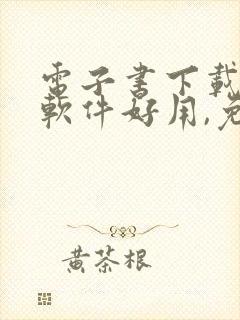 電子書下載
軟件好用,免
黄茶根